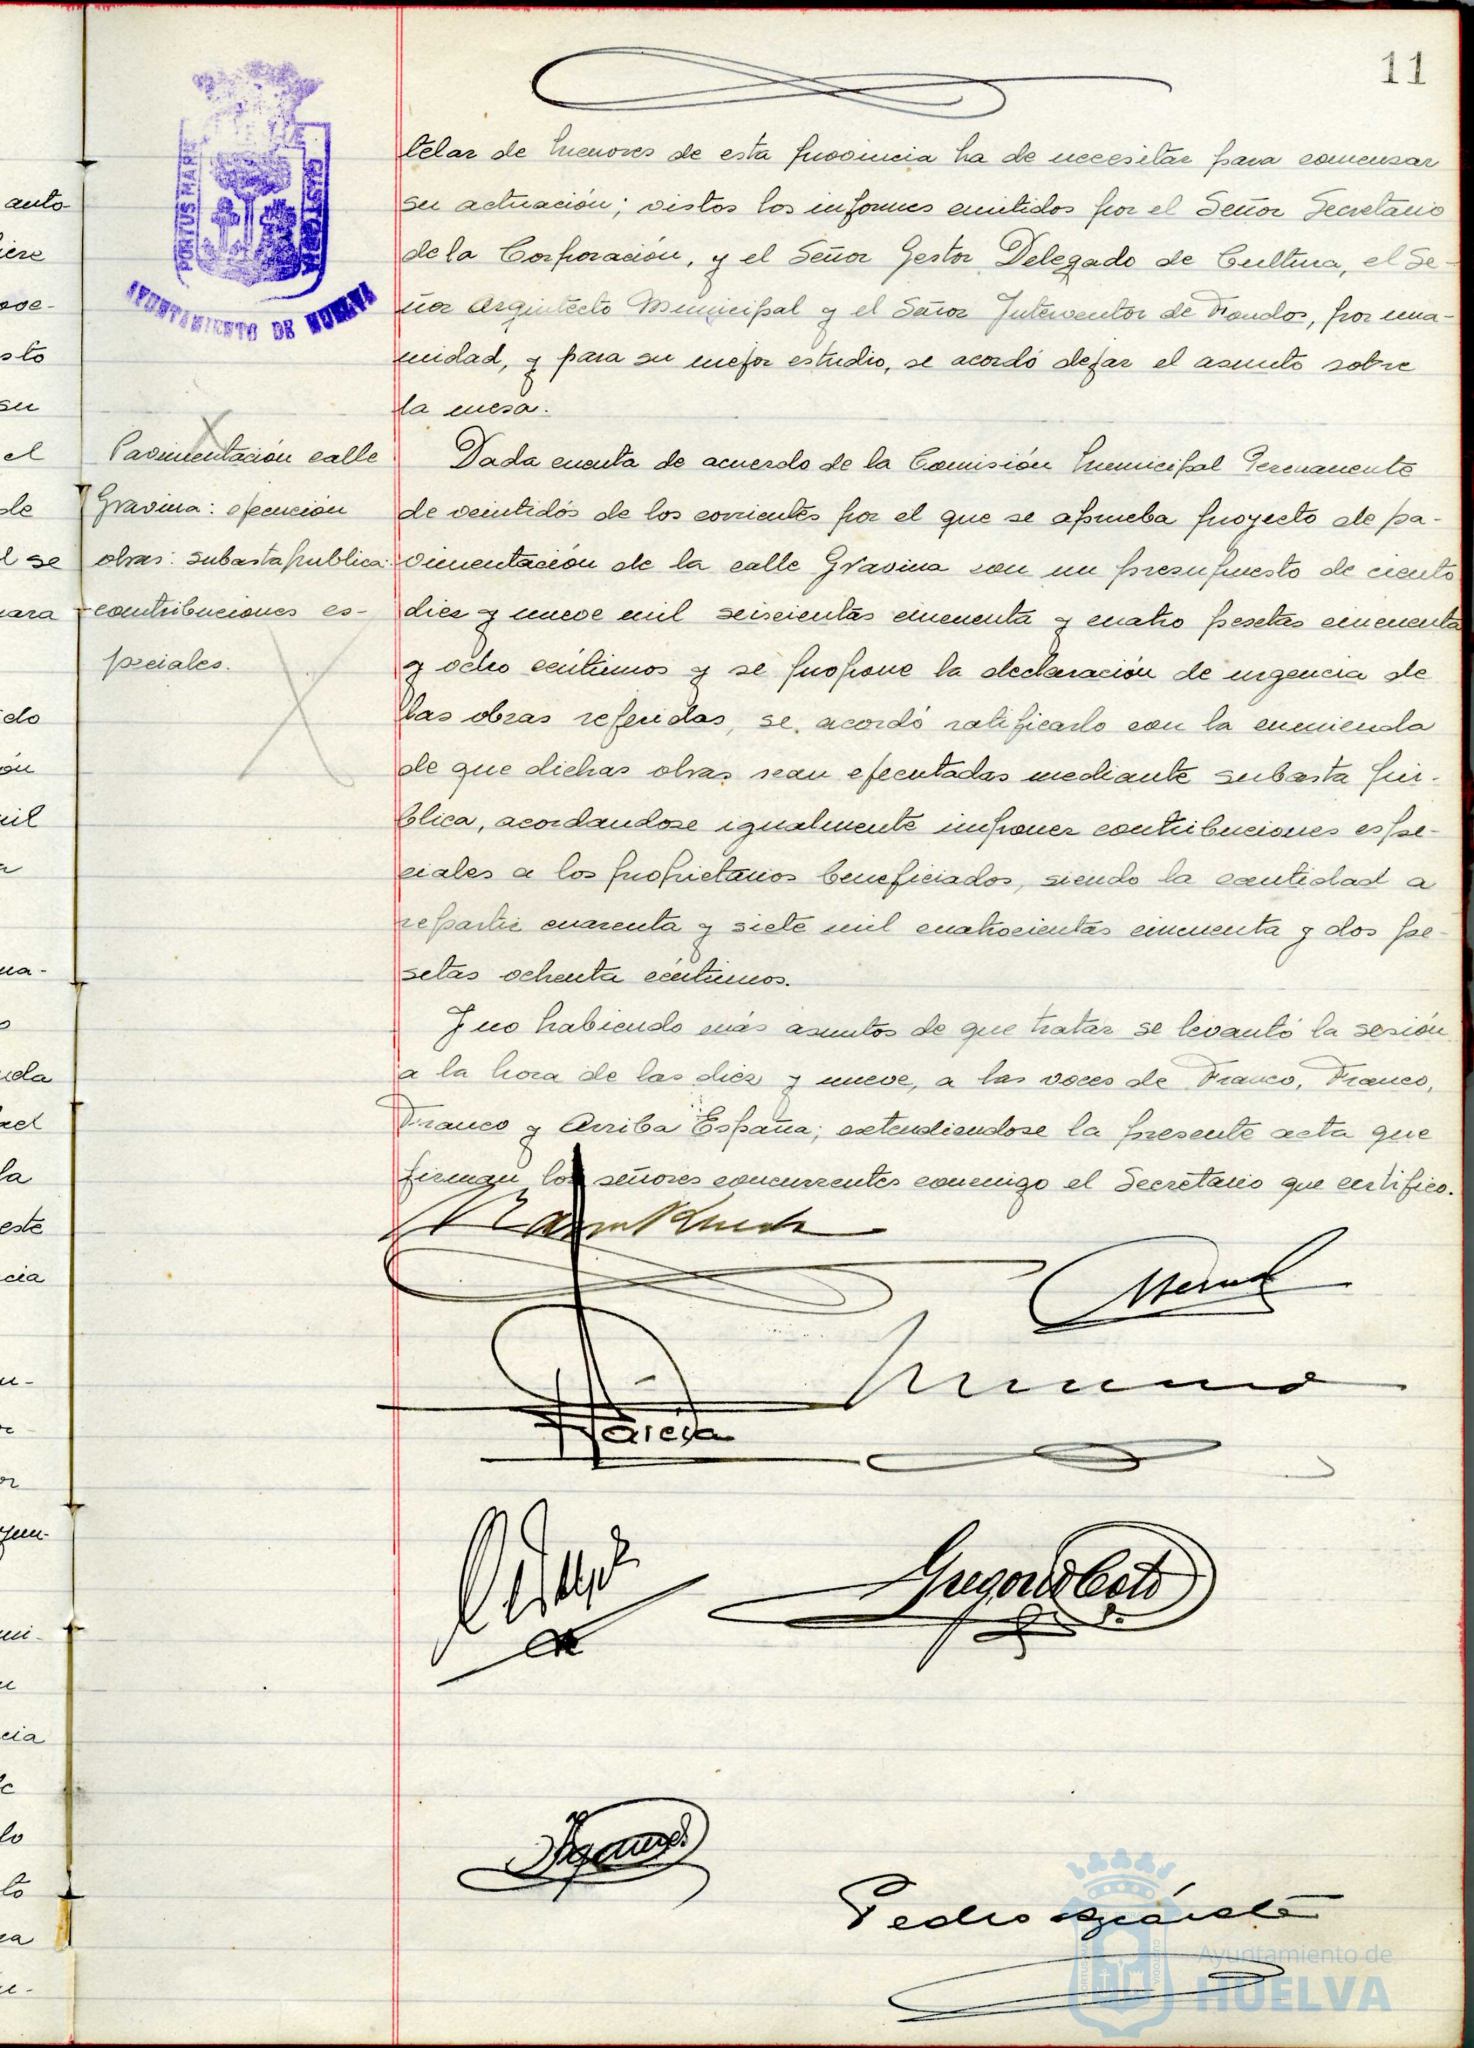 11
PORTUS MARIS
CUSTODIA
AYUNTAMIENTO DE HUELVA
telar de menores de esta provincia ha de necesitar para comenzar
su actuación; vistos los informes emitidos por el Señor Secretario
de la Corporación, y el Señor Gestor Delegado de Cultura, el Se-
ñor Arquitecto Municipal y el Señor Interventor de Fondos, por una-
nidad, y para su mejor estudio, se acordó dejar el asunto sobre
la mesa.
Pavimentación calle
Gravina: ejecución
obras: subasta publica:
contribuciones es-
peciales.
Dada cuenta de acuerdo de la Comisión Municipal Permanente
de veintidós de los corrientes por el que se aprueba proyecto de pa-
vimentación de la calle Gravina con un presupuesto de ciento
diez y nueve mil seiscientas cincuenta y cuatro pesetas cincuenta
y ocho céntimos y se propone la declaración de urgencia de
las obras referidas, se acordó ratificarlo con la enmienda
de que dichas obras sean ejecutadas mediante subasta pú-
blica, acordandose igualmente imponer contribuciones espe-
ciales a los propietarios beneficiados, siendo la cantidad a
repartir cuarenta y siete mil cuatrocientas cincuenta y dos pe-
setas ochenta céntimos.
Y no habiendo más asuntos de que tratar se levantó la sesión
a la hora de las diez y nueve, a las voces de Franco, Franco,
Franco y Arriba España; extendiendose la presente acta que
firman los señores concurrentes conmigo el Secretario que certifico.
García
Gregorio Coto
Pedro
Ayuntamiento de
HUELVA
auto-
ove-
sto
su
el
de
l se
ara
ido
ón
mil
na-
nda
la
este
cia
or
cia
lo
to